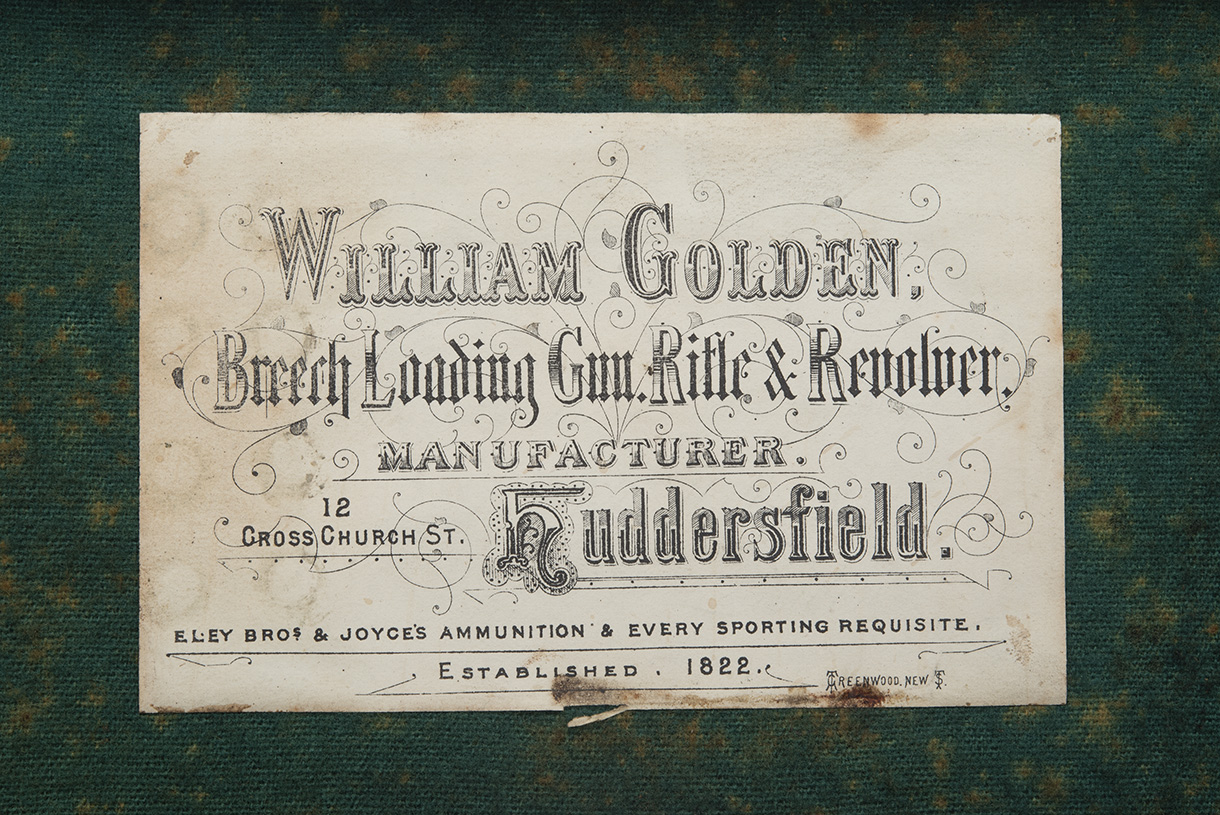 WILLIAM GOLDEN,
Breech Loading Gun. Rifle & Revolver.
MANUFACTURER.
12
CROSS CHURCH ST.
Huddersfield.
ELEY BROS & JOYCE'S AMMUNITION & EVERY SPORTING REQUISITE.
ESTABLISHED . 1822.
GREENWOOD, NEW ST.